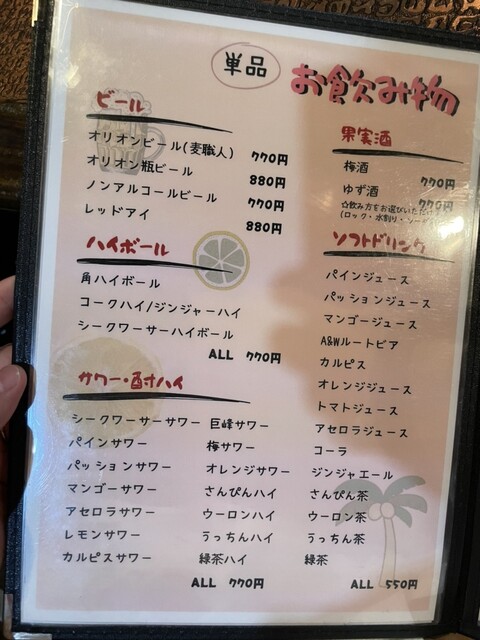 単品
お飲み物
ビール
オリオンビール(麦職人) 770円
オリオン瓶ビール 880円
ノンアルコールビール 770円
レッドアイ 880円
ハイボール
角ハイボール
コークハイ/ジンジャーハイ
シークワーサーハイボール
ALL 770円
サワー・酎ハイ
シークワーサーサワー 巨峰サワー
パインサワー 梅サワー
パッションサワー オレンジサワー
マンゴーサワー さんぴんハイ
アセロラサワー ウーロンハイ
レモンサワー うっちんハイ
カルピスサワー 緑茶ハイ
ALL 770円
果実酒
梅酒 770円
ゆず酒 770円
☆飲み方をお選びいただけ
(ロック・水割り・ソー
ソフトドリンク
パインジュース
パッションジュース
マンゴージュース
A&Wルートビア
カルピス
オレンジジュース
トマトジュース
アセロラジュース
コーラ
ジンジャエール
さんぴん茶
ウーロン茶
うっちん茶
緑茶
ALL 550円